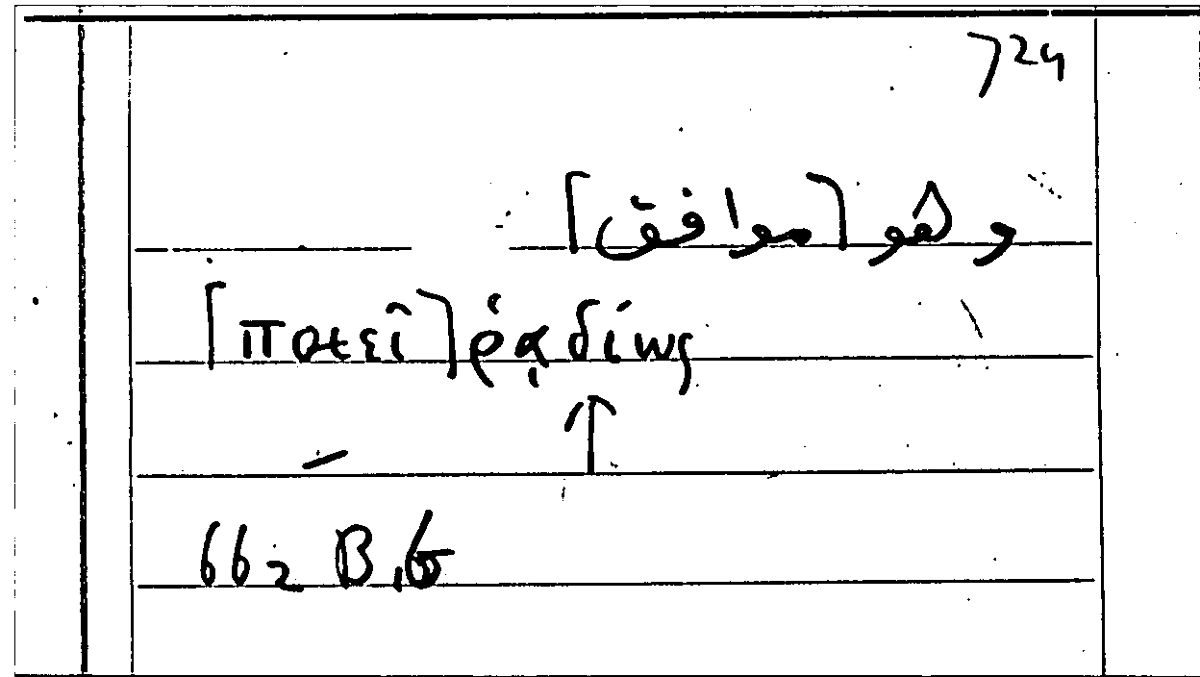 724
وهو [موافق]
[ποιεῖ] ῥᾳδίως
↑
66₂ B,6